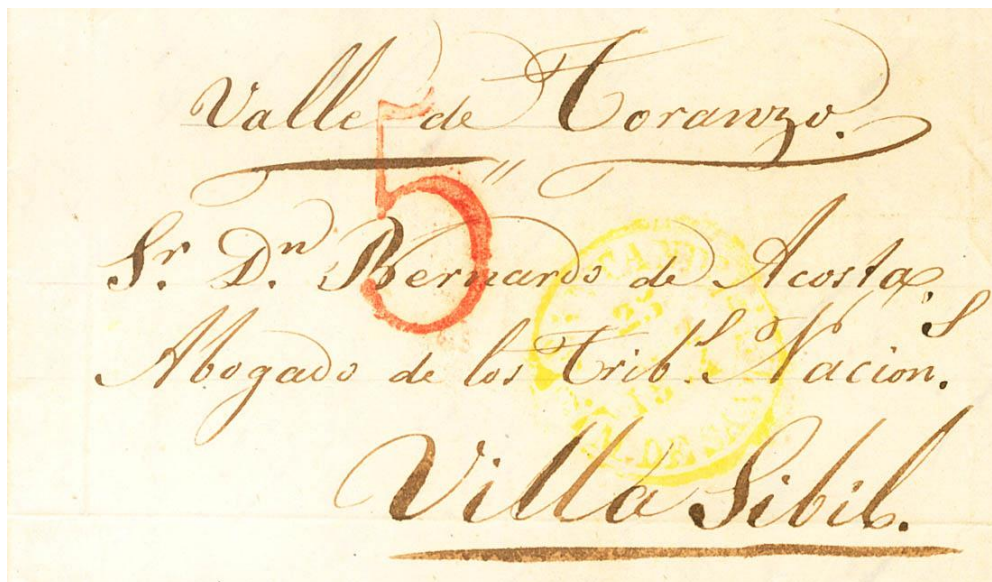 Valle de Toranzo.
5
Sr. Dn. Bernardo de Acosta,
Abogado de los Tribs. Nacions.
Villa Sibil.
23